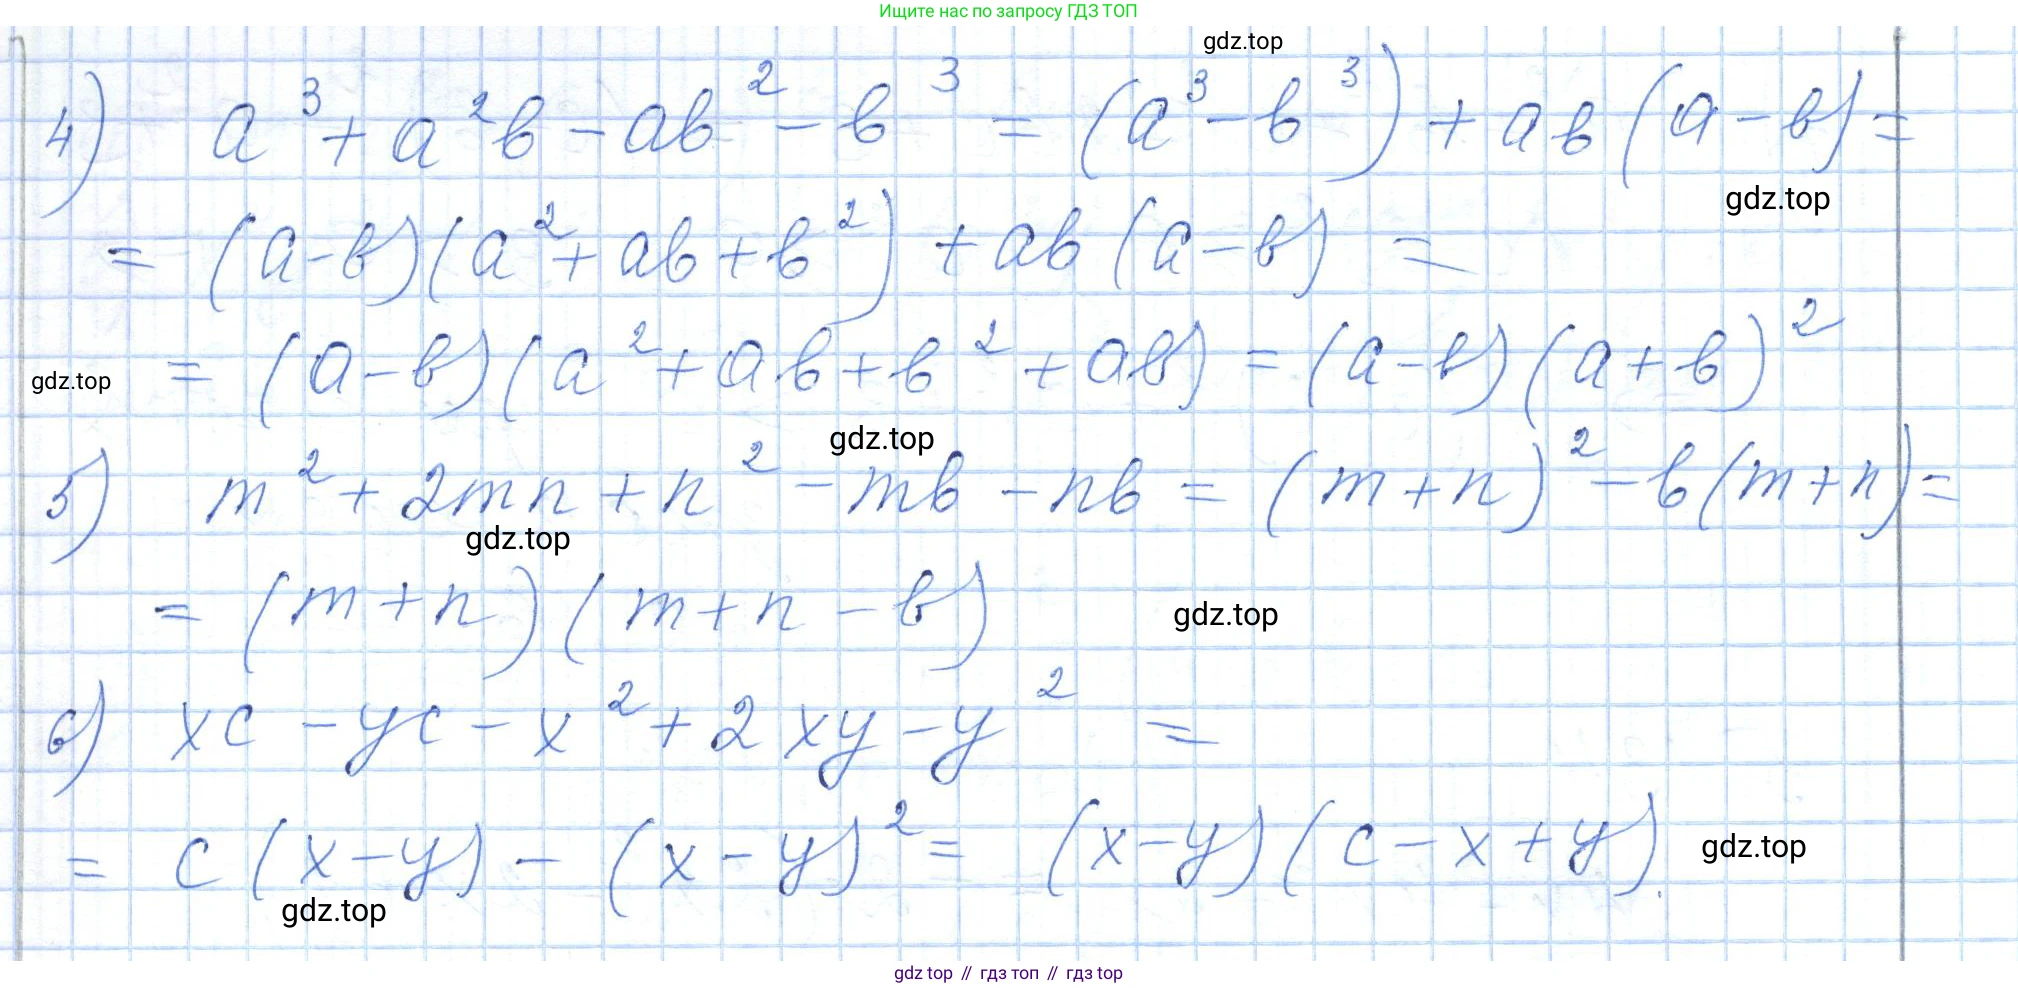 Ищите нас по запросу ГДЗ ТОП
gdz.top
4) a³ + a²b - ab² - b³ = (a³ - b³) + ab(a - b) =
gdz.top
= (a - b)(a² + ab + b²) + ab(a - b) =
= (a - b)(a² + ab + b² + ab) = (a - b)(a + b)²
gdz.top
gdz.top
5) m² + 2mn + n² - mb - nb = (m + n)² - b(m + n) =
gdz.top
= (m + n)(m + n - b)
gdz.top
6) xc - yc - x² + 2xy - y² =
= c(x - y) - (x - y)² = (x - y)(c - x + y).
gdz.top
gdz.top
gdz top // гдз топ // гдз top